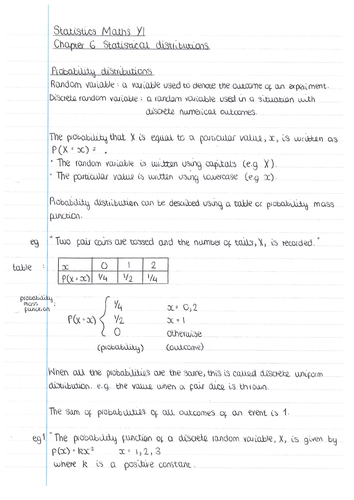 Statistics Maths Y1
Chapter 6 Statistical distributions
Probability distributions
Random variable : a variable used to denote the outcome of an experiment.
Discrete random variable : a random variable used in a situation with
discrete numerical outcomes.
The probability that X is equal to a particular value, x, is written as
P(X = x) = .
• The random variable is written using capitals (e.g X).
• The particular value is written using lowercase (e.g x).
Probability distribution can be described using a table or probability mass
function.
eg "Two fair coins are tossed and the number of tails, X, is recorded."
table : x 0 1 2
P(X = x) 1/4 1/2 1/4
probability
mass
function :
P(X = x) { 1/4 x = 0, 2
1/2 x = 1
0 otherwise
(probability) (outcome)
When all the probabilities are the same, this is called discrete uniform
distribution. e.g. the value when a fair dice is thrown.
The sum of probabilities of all outcomes of an event is 1.
eg1 "The probability function of a discrete random variable, X, is given by
p(x) = kx² x = 1, 2, 3
where k is a positive constant.